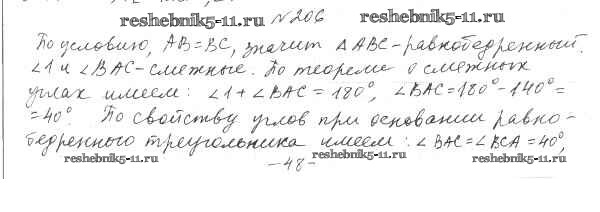 reshebnik5-11.ru № 206 reshebnik5-11.ru
По условию, AB=BC, значит ΔABC-равнобедренный.
∠1 и ∠BAC-смежные. По теореме о смежных
углах имеем: ∠1+∠BAC=180°, ∠BAC=180°-140°=
=40°. По свойству углов при основании равно-
бедренного треугольника имеем: ∠BAC=∠BCA=40°,
reshebnik5-11.ru -48- reshebnik5-11.ru reshebnik5-11.ru